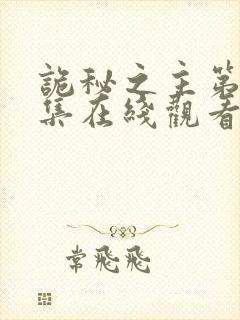 詭秘之主第
集在綫觀看
常飛飛